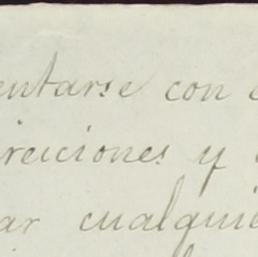 entarse con
reiciones y
ar cualquie